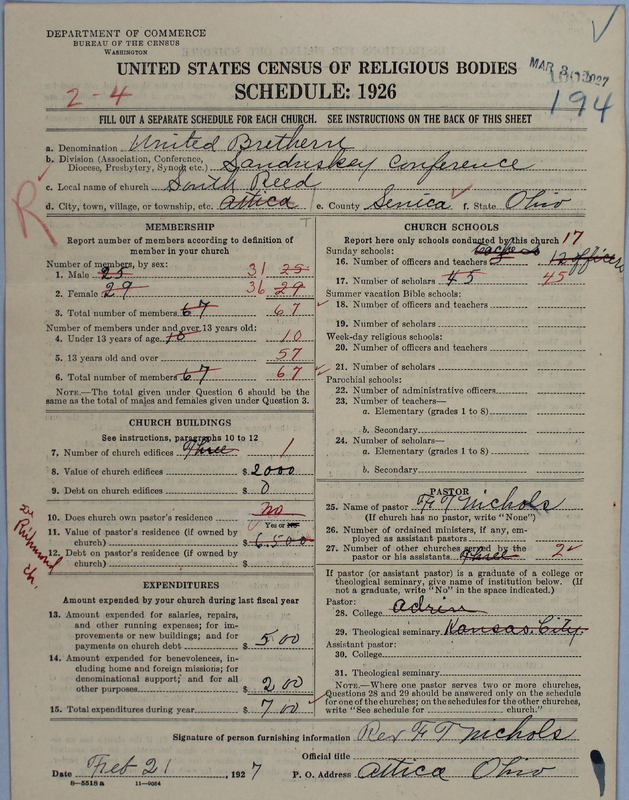 DEPARTMENT OF COMMERCE
BUREAU OF THE CENSUS
WASHINGTON
UNITED STATES CENSUS OF RELIGIOUS BODIES
MAR 3 1927
2-4
SCHEDULE: 1926
194
FILL OUT A SEPARATE SCHEDULE FOR EACH CHURCH. SEE INSTRUCTIONS ON THE BACK OF THIS SHEET
a. Denomination United Brethern
b. Division (Association, Conference, Diocese, Presbytery, Synod, etc.) Sanduskey Conference
c. Local name of church South Reed
d. City, town, village, or township, etc. Attica e. County Senica f. State Ohio
R
MEMBERSHIP
Report number of members according to definition of member in your church
Number of members, by sex:
1. Male 25 31 25
2. Female 29 36 29
3. Total number of members 67 67
Number of members under and over 13 years old:
4. Under 13 years of age 10 10
5. 13 years old and over 57
6. Total number of members 67 67
NOTE.—The total given under Question 6 should be the same as the total of males and females given under Question 3.
CHURCH BUILDINGS
See instructions, paragraphs 10 to 12
7. Number of church edifices Three 1
8. Value of church edifices $ 2000
9. Debt on church edifices $ 0
10. Does church own pastor's residence no
Yes or No
11. Value of pastor's residence (if owned by church) $ 6.500
12. Debt on pastor's residence (if owned by church) $
Richmond Ch.
EXPENDITURES
Amount expended by your church during last fiscal year
13. Amount expended for salaries, repairs, and other running expenses; for improvements or new buildings; and for payments on church debt $ 500
14. Amount expended for benevolences, including home and foreign missions; for denominational support; and for all other purposes $ 200
15. Total expenditures during year $ 700
CHURCH SCHOOLS
Report here only schools conducted by this church 17
Sunday schools:
16. Number of officers and teachers teachers 5 12 officers
17. Number of scholars 45 45
Summer vacation Bible schools:
18. Number of officers and teachers
19. Number of scholars
Week-day religious schools:
20. Number of officers and teachers
21. Number of scholars
Parochial schools:
22. Number of administrative officers
23. Number of teachers—
a. Elementary (grades 1 to 8)
b. Secondary
24. Number of scholars—
a. Elementary (grades 1 to 8)
b. Secondary
PASTOR
25. Name of pastor F T Nichols
(If church has no pastor, write "None")
26. Number of ordained ministers, if any, employed as assistant pastors
27. Number of other churches served by the pastor or his assistants Three 2
If pastor (or assistant pastor) is a graduate of a college or theological seminary, give name of institution below. (If not a graduate, write "No" in the space indicated.)
Pastor:
28. College Adrin
29. Theological seminary Kansas City
Assistant pastor:
30. College
31. Theological seminary
NOTE.—Where one pastor serves two or more churches, Questions 28 and 29 should be answered only on the schedule for one of the churches; on the schedules for the other churches, write "See schedule for church."
Signature of person furnishing information Rev F T Nichols
Official title
Date Feb 21, 1927 P. O. Address Attica Ohio
8-5518a 11-9054